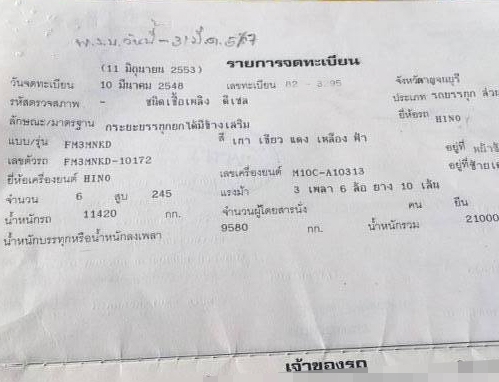 พ.ร.บ. วันที่ - 31 มี.ค. 67
รายการจดทะเบียน
(11 มิถุนายน 2553)
วันจดทะเบียน 10 มีนาคม 2548 เลขทะเบียน 82 - 3 95 จังหวัดกาญจนบุรี
รหัสตรวจสภาพ - ชนิดเชื้อเพลิง ดีเซล ประเภท รถบรรทุก ส่วน
ลักษณะ/มาตรฐาน กระบะบรรทุกยกได้มีข้างเสริม ยี่ห้อรถ HINO
แบบ/รุ่น FM3MNKD สี เทา เขียว แดง เหลือง ฟ้า
เลขตัวรถ FM3MNKD-10172 อยู่ที่
ยี่ห้อเครื่องยนต์ HINO เลขเครื่องยนต์ M10C-A10313 อยู่ที่
จำนวน 6 สูบ 245 แรงม้า 3 เพลา 6 ล้อ ยาง 10 เส้น
น้ำหนักรถ 11420 กก. จำนวนผู้โดยสารนั่ง คน ยืน
น้ำหนักบรรทุกหรือน้ำหนักลงเพลา 9580 กก. น้ำหนักรวม 21000
เจ้าของรถ